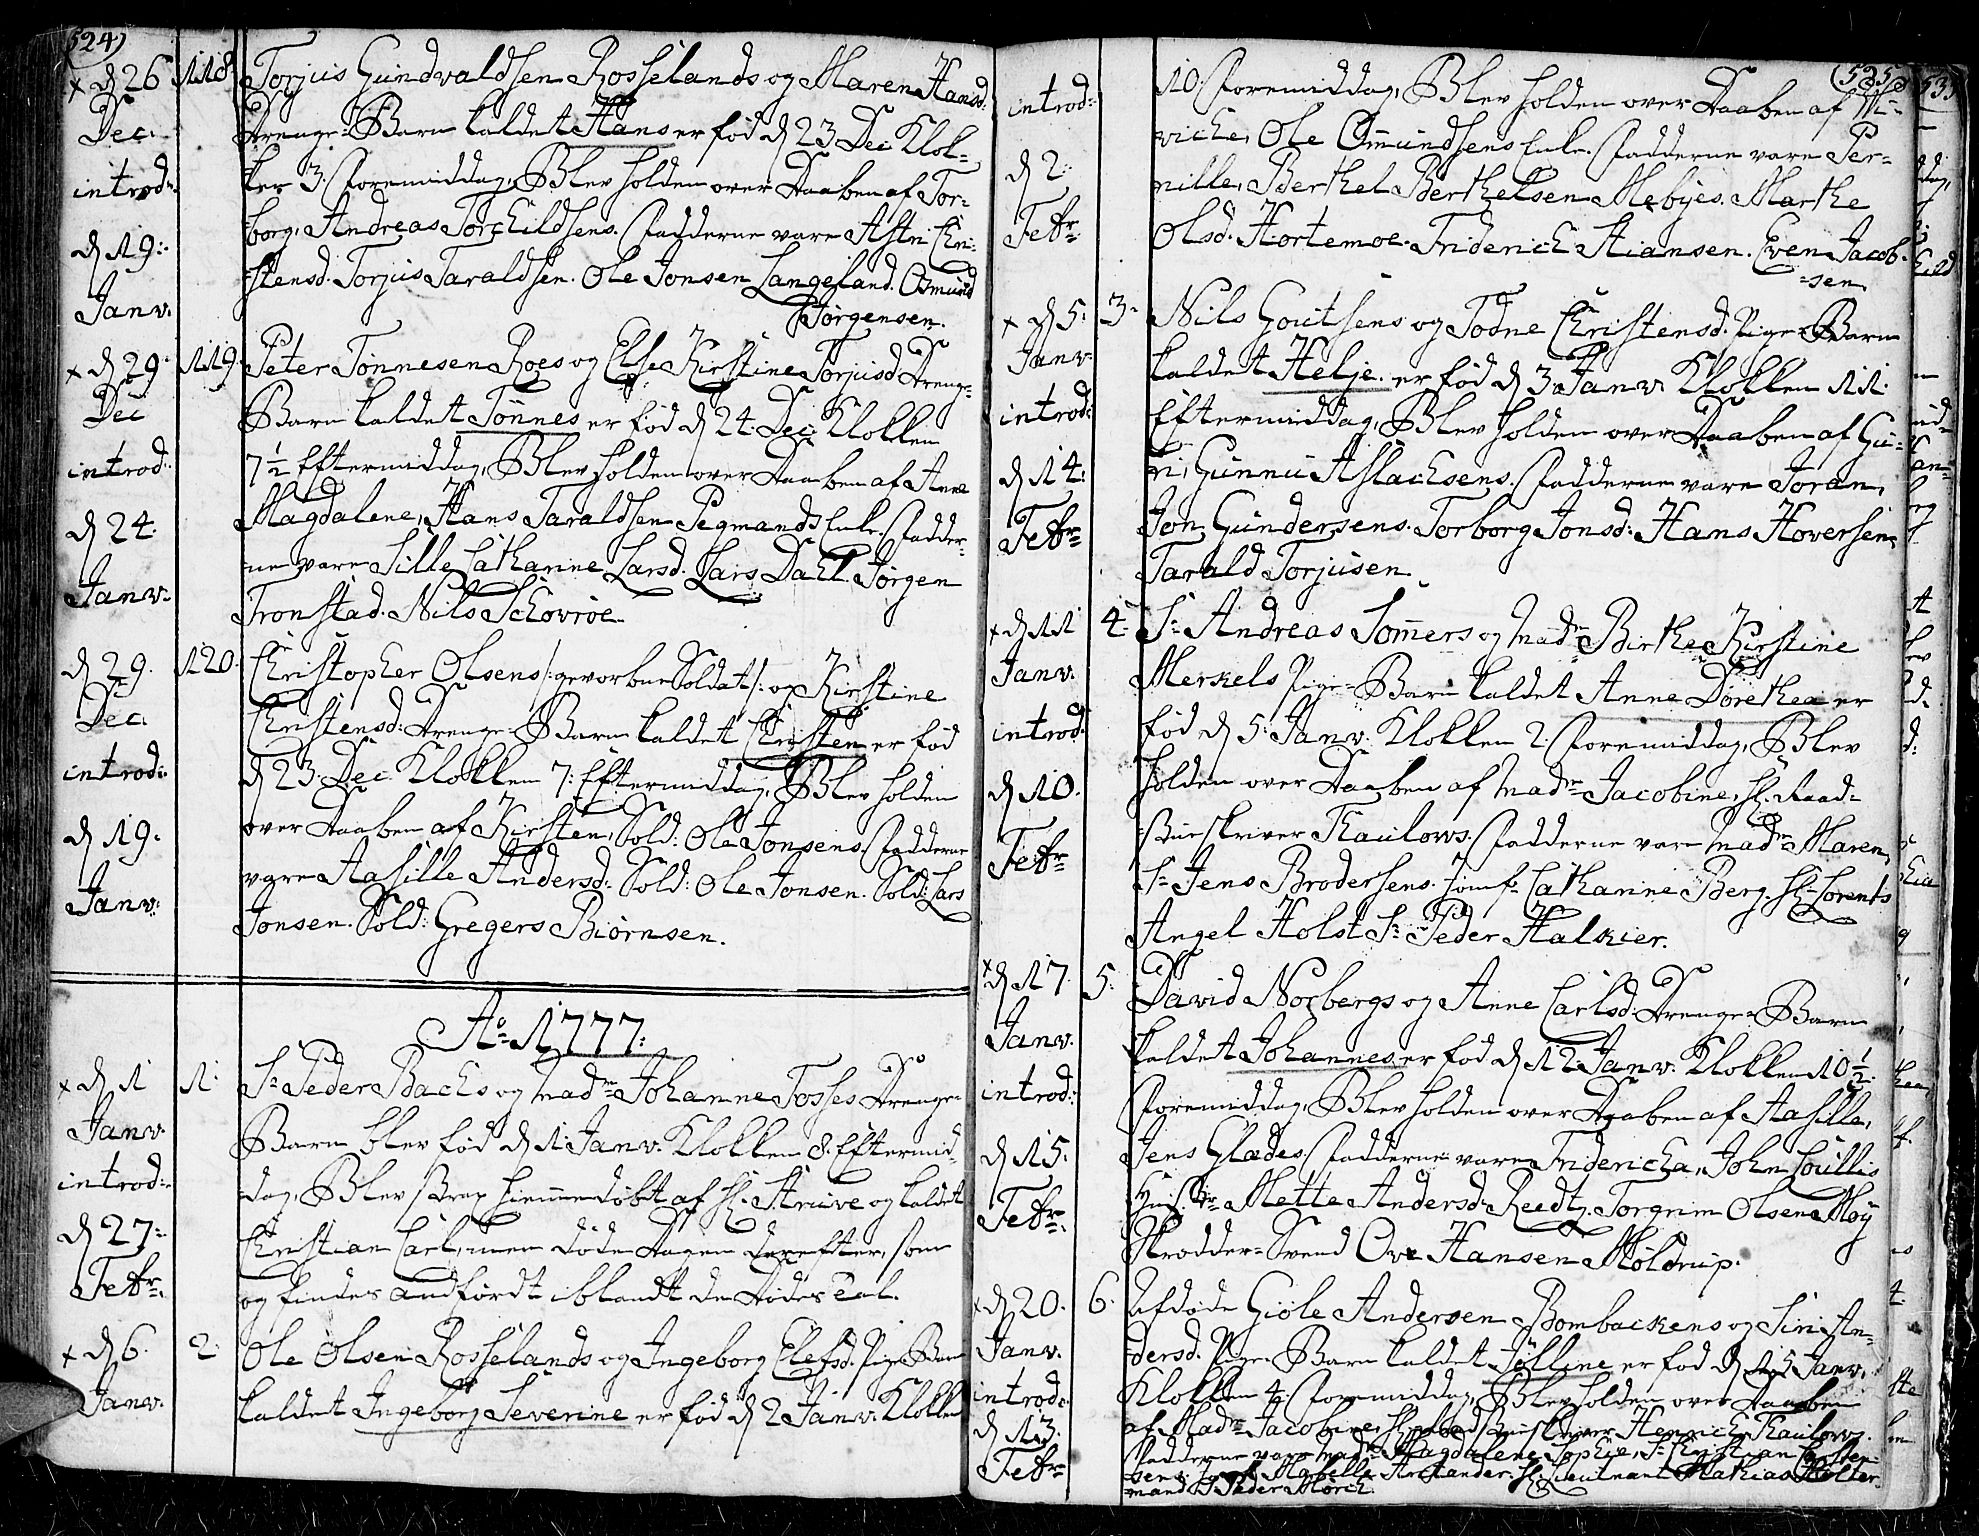 524)
x d 26 Dec. introd: d 19: Janv.
118
Torjus Gundvaldsen Rosselands og Maren Hansd:
Drenge-Barn kaldet Hans er fød d 23 Dec Klok-
ker 3. Formiddag, Blev holden over Daaben af Tor-
borg, Andreas Torchildsens. Fadderne vare Astri Chri-
stensd. Torjus Taraldsen. Ole Jonsen Langeland. Osmund
Jørgensen.
x d 29. Dec introd: d 24. Janv:
119.
Peter Tønnesen Roes og Else Kirstine Torjusd Drenge-
Barn kaldet Tønnes er fød d 24. Dec: Klokken
7½ Eftermiddag, Blev holden over Daaben af Anne
Magdalene, Hans Taraldsen Pegmands Enke. Fadder-
ne vare Sille Cathanne Larsd. Lars Dahl. Jørgen
Tronstad. Nils Schovroe.
d 29. Dec. introd: d 19. Janv:
120.
Christopher Olsens /: gevorbne Soldat :/ og Kirstine
Christensd: Drenge-Barn kaldet Christen er fød
d 23. Dec. Klokken 7: Eftermiddag, Blev holden
over Daaben af Kirsten, Sold: Ole Jonsens. Fadderne
vare Aasille Andersd: Sold: Ole Jonsen. Sold: Lars
Jonsen. Sold: Gregers Biørnsen.
Ao 1777:
x d 1 Janv. introd: d 27: Febr.
1:
Sr Peder Bachs og Madm Johanne Fosses Drenge-
Barn blev fød d 1 Janv. Klokken 8. Eftermid-
dag, Blev strax hiemmedøbt af Hr. Struve og kaldet
Christian Carl, men døde Dagen derefter, som
og findes andførdt iblandt de Dødes Tal.
x d 6. Janv.
2.
Ole Olsen Rosselands og Ingeborg Elefsd. Pige-Barn
kaldet Ingeborg Severine er fød d 2 Janv. Klokken
(525
introd: d 2. Febr
10. Formiddag, Blev holden over Daaben af
viche, Ole Omundsens Enke. Fadderne vare Per-
nille, Berthel Berthelsen Mebyes. Marthe
Olsd. Hortemoe. Friderich Stiansen. Even Jacob-
sen.
x d 5. Janv. introd: d 14: Febr
3.
Nils Goutsens og Todne Christensd. Pige-Barn
kaldet Helje. er fød d 3. Janv. Klokken 11.
Eftermiddag, Blev holden over Daaben af Gu-
ri, Gunnu Aslachsens. Fadderne vare Joran,
Jon Gundersens. Torborg Jonsd: Hans Hoversen.
Tarald Torjusen.
x d 11 Janv. introd: d 10. Febr
4.
Sr Andreas Somers og Madm Birthe Kirstine
Merkels Pige-Barn kaldet Anne Dorethea er
fød d 5. Janv. Klokken 2. Formiddag, Blev
holden over Daaben af Madm Jacobine, Hr. Raad-
stueskriver Thaulows. Fadderne vare Madm Maren,
Sr Jens Brodersens. Jomf. Cathanne Berg. Hr Lorents
Angel Holst Sr Peder Halkier.
x d 17. Janv. introd: d 15. Febr.
5.
David Norbergs og Anne Carlsd. Drenge-Barn
kaldet Johannes er fød d 12. Janv. Klokken 10½
Formiddag, Blev holden over Daaben af Aasille,
Jens Glades. Fadderne vare Fridericha, John Coullis
Hustr Mette Andersd: Reedtz. Torgrim Olsen Møy
Skrædder-Svend Ove Hansen Møldrup.
x d 20. Janv. introd: d 13. Febr
6.
Afdøde Giøle Andersen Bombackens og Siri An-
dersd. Pige-Barn kaldet Jølline er fød d 15 Janv.
Klokken 4. Formiddag, Blev holden over Daaben
af Madm Jacobine, Hr. Raadstueskriver Henrich Thaulows.
Fadderne vare Madm Magdalene Sophie, Sr Christian Carsten-
sens. Jomf. Mabelle Archander. Hr. Lieutnant Mathias Holter-
mand Sr Peder Mørch.